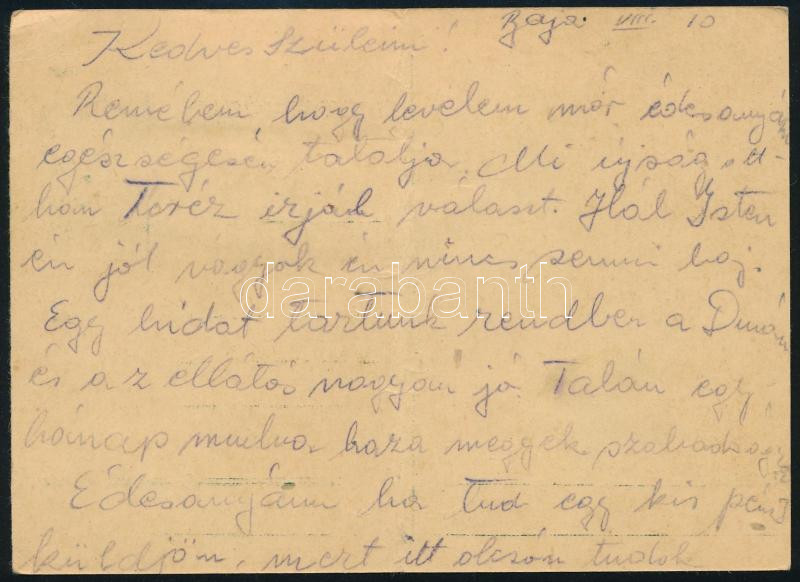 Baja. VIII. 10
Kedves Szüleim!
Remélem hogy levelem már édesanyám
egészségesen találja. Mi újság ott-
hon Teréz irják választ. Hál Isten
én jól vagyok én nincs semmi baj.
darabanth
Egy hidat tartunk rendben a Dunán
és az ellátás nagyon jó Talán egy
hónap mulva haza megyek szabadság
Édesanyám ha tud egy kis pénzt
küldjön, mert itt olcsón tudok